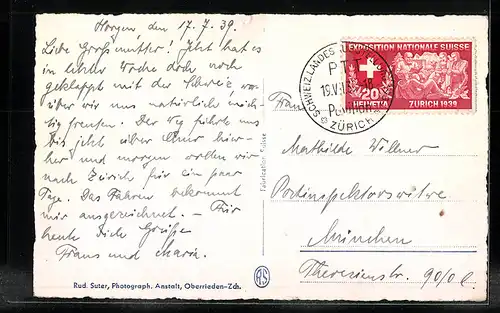 Horgen, den 17.7.39.
Liebe Großmutter! Jetzt hat es
in letzter Woche doch noch
geklappt mit der Schweiz, wo-
rüber wir uns natürlich mich-
tig freuten. Der Weg führte uns
bis jetzt über Ulm hier-
her und morgen wollen wir
nach Zürich für ein paar
Tage. Das Fahren bekommt
mir ausgezeichnet. – Für
heute Dich Grüße
Frans und Maria.
Rud. Suter, Photograph. Anstalt, Oberrieden-Zch.
Fabrication Suisse
RS
SCHWEIZ. LANDES
P.T.T.
ZÜRICH
EXPOSITION NATIONALE SUISSE
20
HELVETIA
ZÜRICH 1939
Frau
Mathilde Willner
Postinspektorswitwe
München
Theresienstr. 90/0 l.